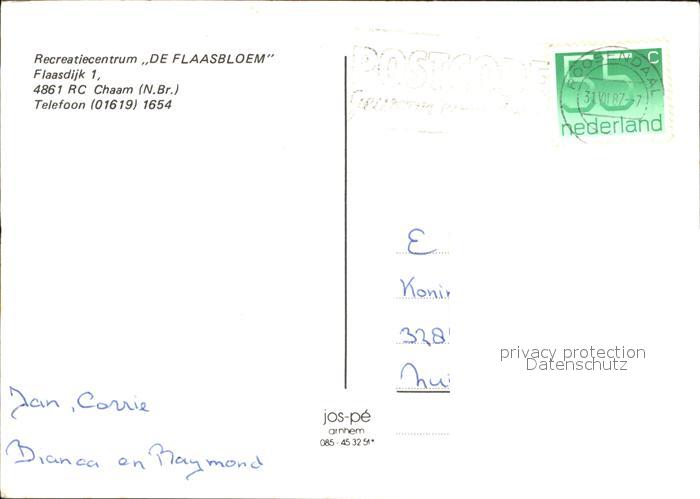 Recreatiecentrum „DE FLAASBLOEM"
Flaasdijk 1,
4861 RC Chaam (N.Br.)
Telefoon (01619) 1654
POSTCODE
55 c
nederland
ROOSENDAAL
31 VII 87-7
E
328
privacy protection
Datenschutz
Jan, Corrie
Bianca en Raymond
jos-pé
arnhem
085-45 32 51*